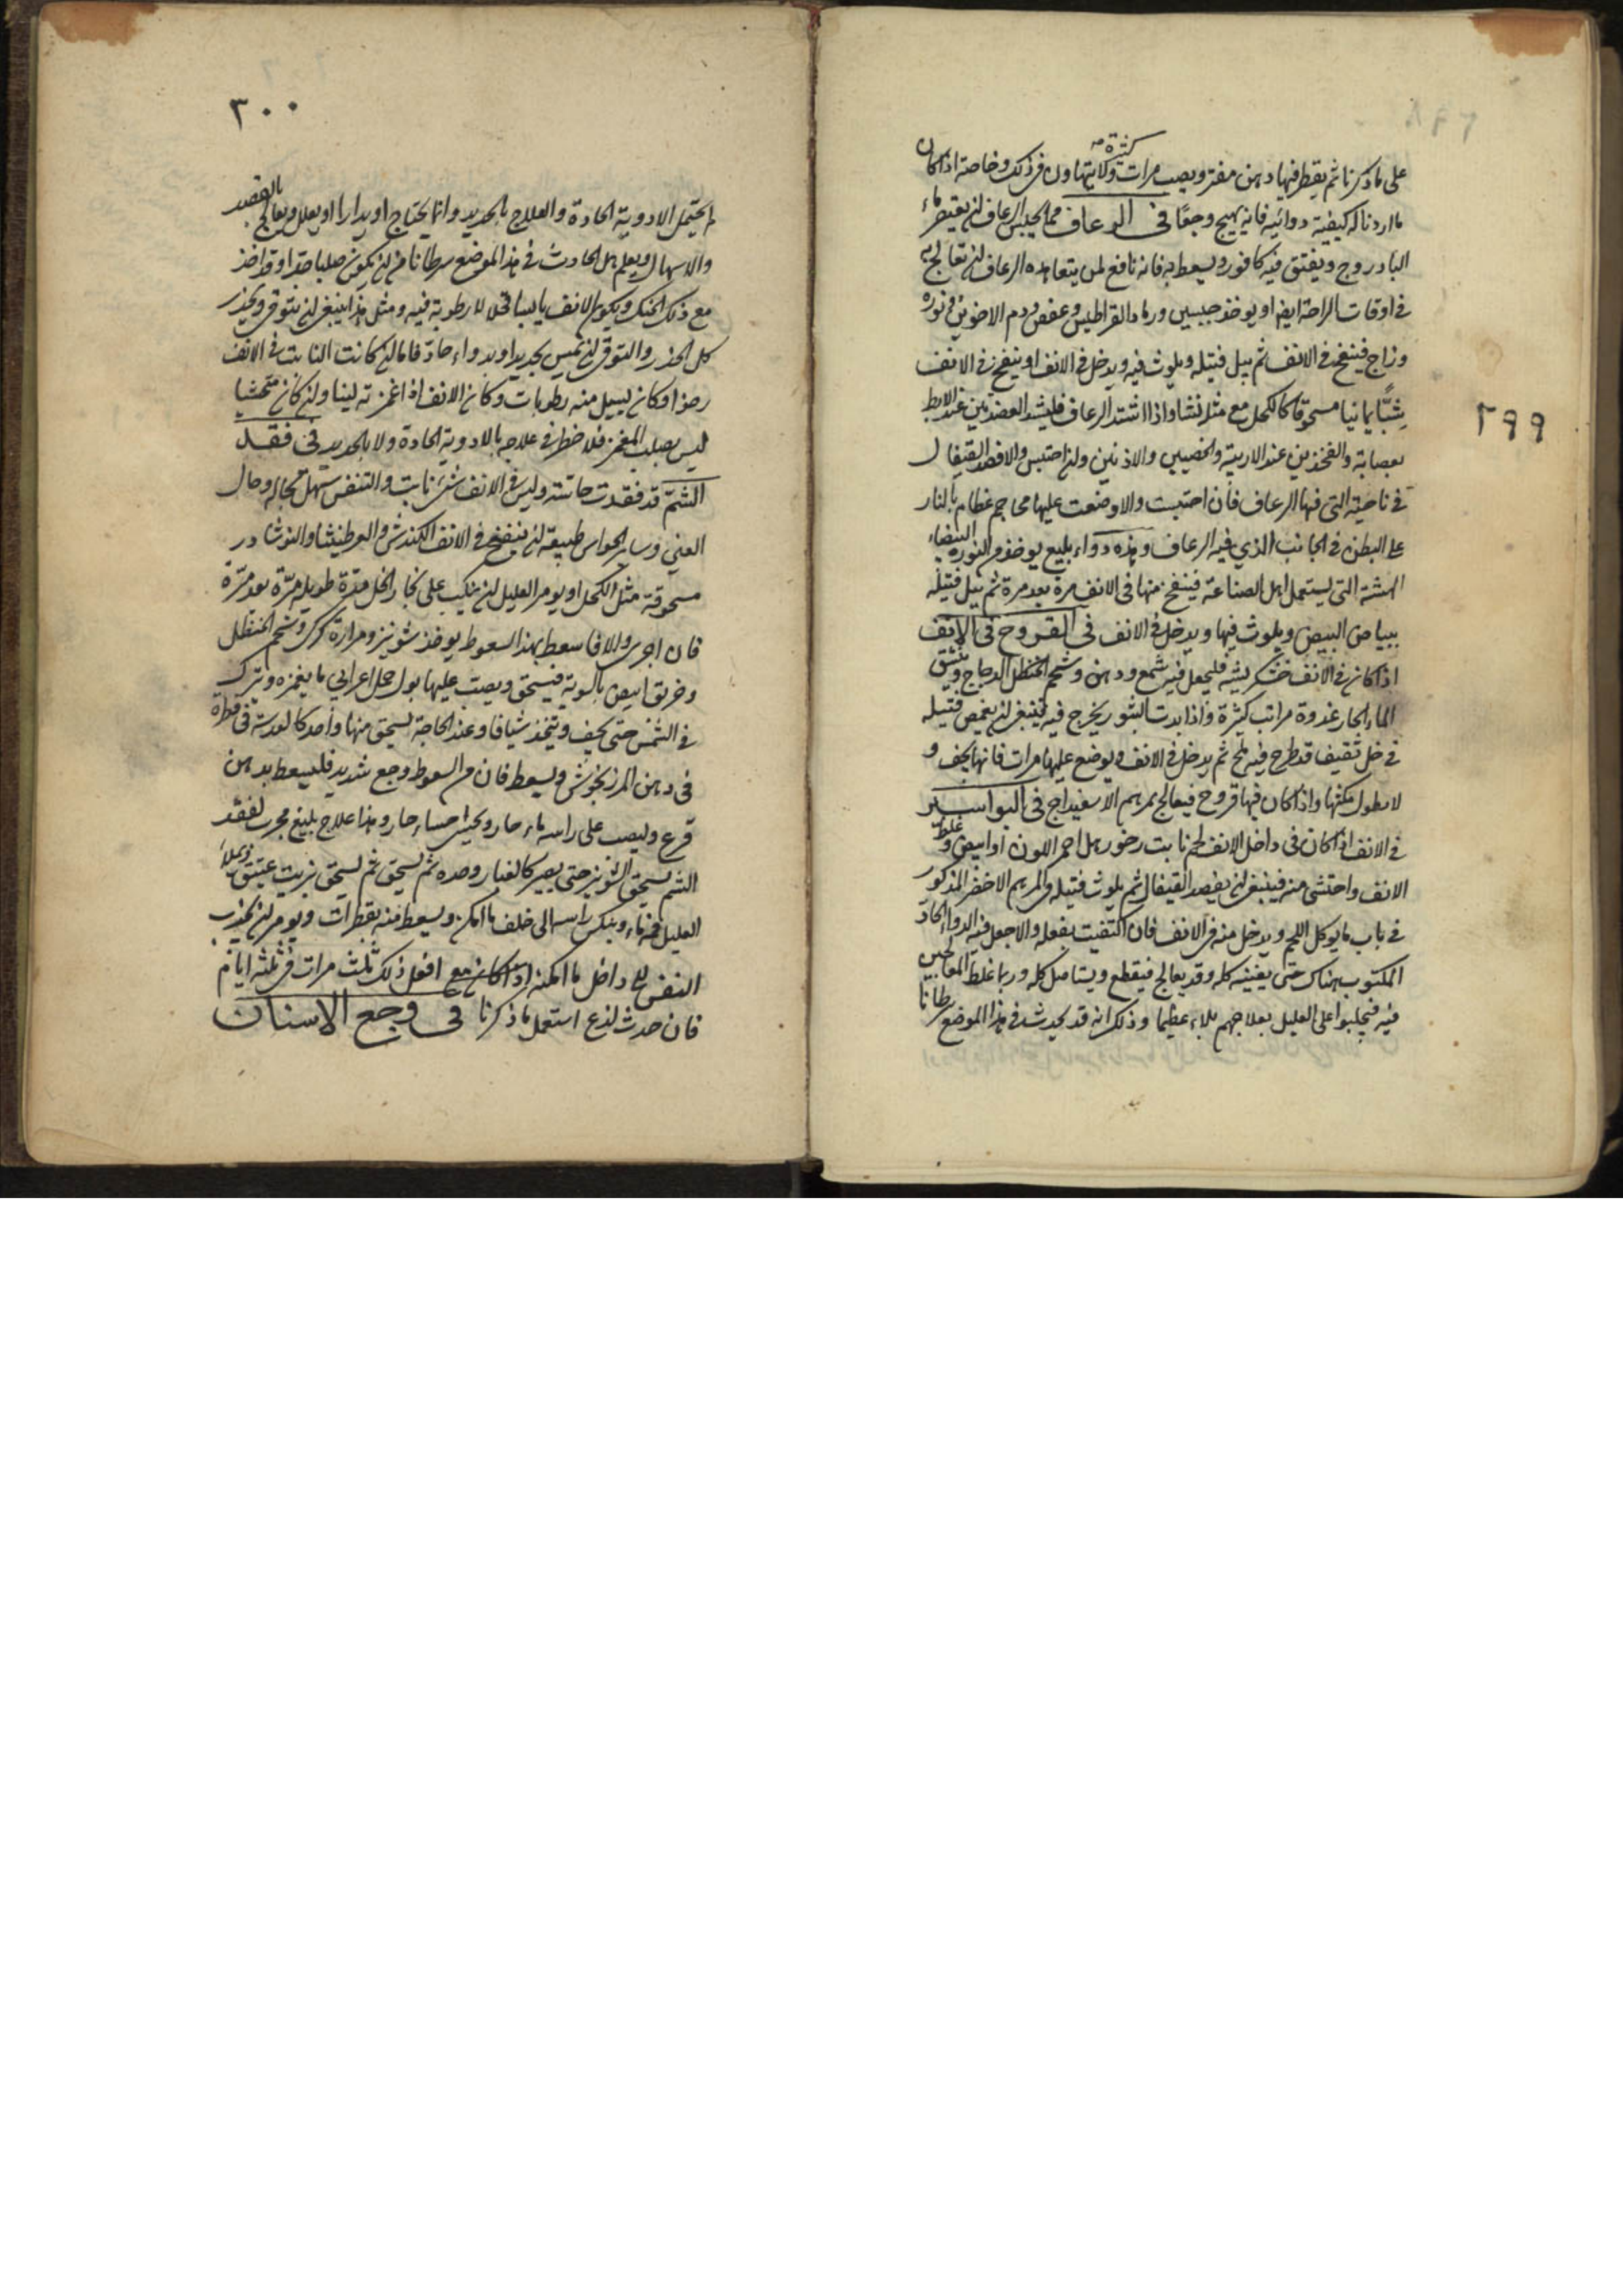 ٢٩٩
كثيرة صح
على ما ذكرنا ثم يقطر فيها دهن مفتر ويصب مرات ولا يتهاون في ذلك وخاصة اذا كان
ما اردنا له كيفية دوائيه فانه يهيج وجعًا في الرعاف مما يحبس الرعاف ان يقطر ماء
البادروج ويفتق فيه كافور ويسعط به فانه نافع لمن يتعاهده الرعاف ان تعالج به
في اوقات الراحة ايضا او يوخذ جبسين ورماد القراطيس وعفص ودم الاخوين ونوره
وزاج فينفخ في الانف ثم يبل فتيله ويلوث فيه ويدخل في الانف او ينفخ في الانف
شبًّا يمانيا مسحوقا كالكحل مع مثله نشا واذا اشتد الرعاف فليشد العضدين عند الابط
بعصابة والفخذين عند الاربية والخصيين والاذنين وان احتبس والا فصد القيفال
في ناحيته التي فيها الرعاف فان احتبست والا وضعت عليها محاجم عظام بالنار
على البطن في الجانب الذي فيه الرعاف وهذه دواء بليغ يوخذ من النورة البيضاء
الهشة التي يستعمل اهل الصناعة فينفخ منها في الانف مرة بعد مرة ثم يبل فتيله
ببياض البيض ويلوث فيها ويدخل في الانف في القروح في الانف
اذا كان في الانف خشكريشه فليجعل فيه شمع ودهن وشحم الحنظل الدجاج وينشق
الماء الحار غدوة مراتب كثيرة واذا بدت البثور يخرج فيه فينبغي ان يغمس فتيله
في خل ثقيف قد طرح فيه ملح ثم يدخل في الانف ويوضع عليها مرات فانها يجف و
لا يطول مكثها واذا كان فيها قروح فيعالج بمرهم الاسفيداج في البواسير
في الانف اذا كان في داخل الانف لحم نابت رخو رهل احمر اللون او ابيض وغلظ
الانف واحتشى منه فينبغي ان يفصد القيفال ثم يلوث فتيله في المرهم الاخضر المذكور
في باب ما يوكل اللحم ويدخل منه في الانف فان اكتفيت بفعله والا جعل فيه الدواء الحاد
المكتوب هناك حتى يفنيه كله وقد يعالج فيقطع ويستاصل كله وربما غلط المعالجين
فيه فيجلبوا على العليل بعلاجهم بلاء عظيما وذلك انه قد يحدث في هذا الموضع سرطانا
٣٠٠
لا يحتمل الادوية الحادة والعلاج بالحديد وانما يحتاج او يدارا او يعلل ويعالج بالفصد
والاسهال ويعلم هل الحادث في هذا الموضع سرطانا من ان يكون صلبا جدا وقد اخذ
مع ذلك الحنك ويكون الانف يابسا قحلا لا رطوبة فيه ومثل هذا ينبغي ان يتوقى ويحذر
كل الحذر والتوقي ان يمس بحديد او بدواء حادّ فاما ان كانت النابت في الانف
رخوا وكان يسيل منه رطوبات وكان الانف اذا غمزته لينا وان كان محتشيا
ليس بصلب المغمز فلا خطر في علاجه بالادوية الحادة ولا بالحديد في فقد
الشمّ قد فقدت حاسته وليس في الانف شيء نابت والتنفس سهل بحاله وحال
العين وساير الحواس طبيعية ان ينفخ في الانف الكندش والعرطنيثا والنوشادر
مسحوقة مثل الكحل او يومر العليل ان ينكب على بخار الخل مدة طويله مرّة بعد مرّة
فان اجرى والا فاسعط بهذا السعوط يوخذ شونيز ومرارة كركي وشحم الحنظل
وخربق ابيض بالسوية فيسحق ويصب عليها بول جمل اعرابي ما يغمره ويترك
في الشمس حتى يجف ويتخذ شيافا وعند الحاجة يسحق منها واحد كالعدسة في قطرة
في دهن المرزنجوش ويسعط فان من السعوط وجع شديد فليسعط بدهن
قرع ويصب على راسه ماء حار ويحسى حساء حار وهذا علاج بليغ مجرب لفقد
الشم يسحق الشونيز حتى يصير كالغبار وحده ثم يسحق ثم يسحق بزيت عتيق ويملا
العليل فمه ماء وينكس راسه الى خلف ما امكن ويسعط منه بقطرات ويومر ان يجذب
النفس الى داخل ما امكنه افعل ذلك ثلث مرات في ثلثة ايام
فان حدث لذع استعمل ما ذكرنا في وجع الاسنان